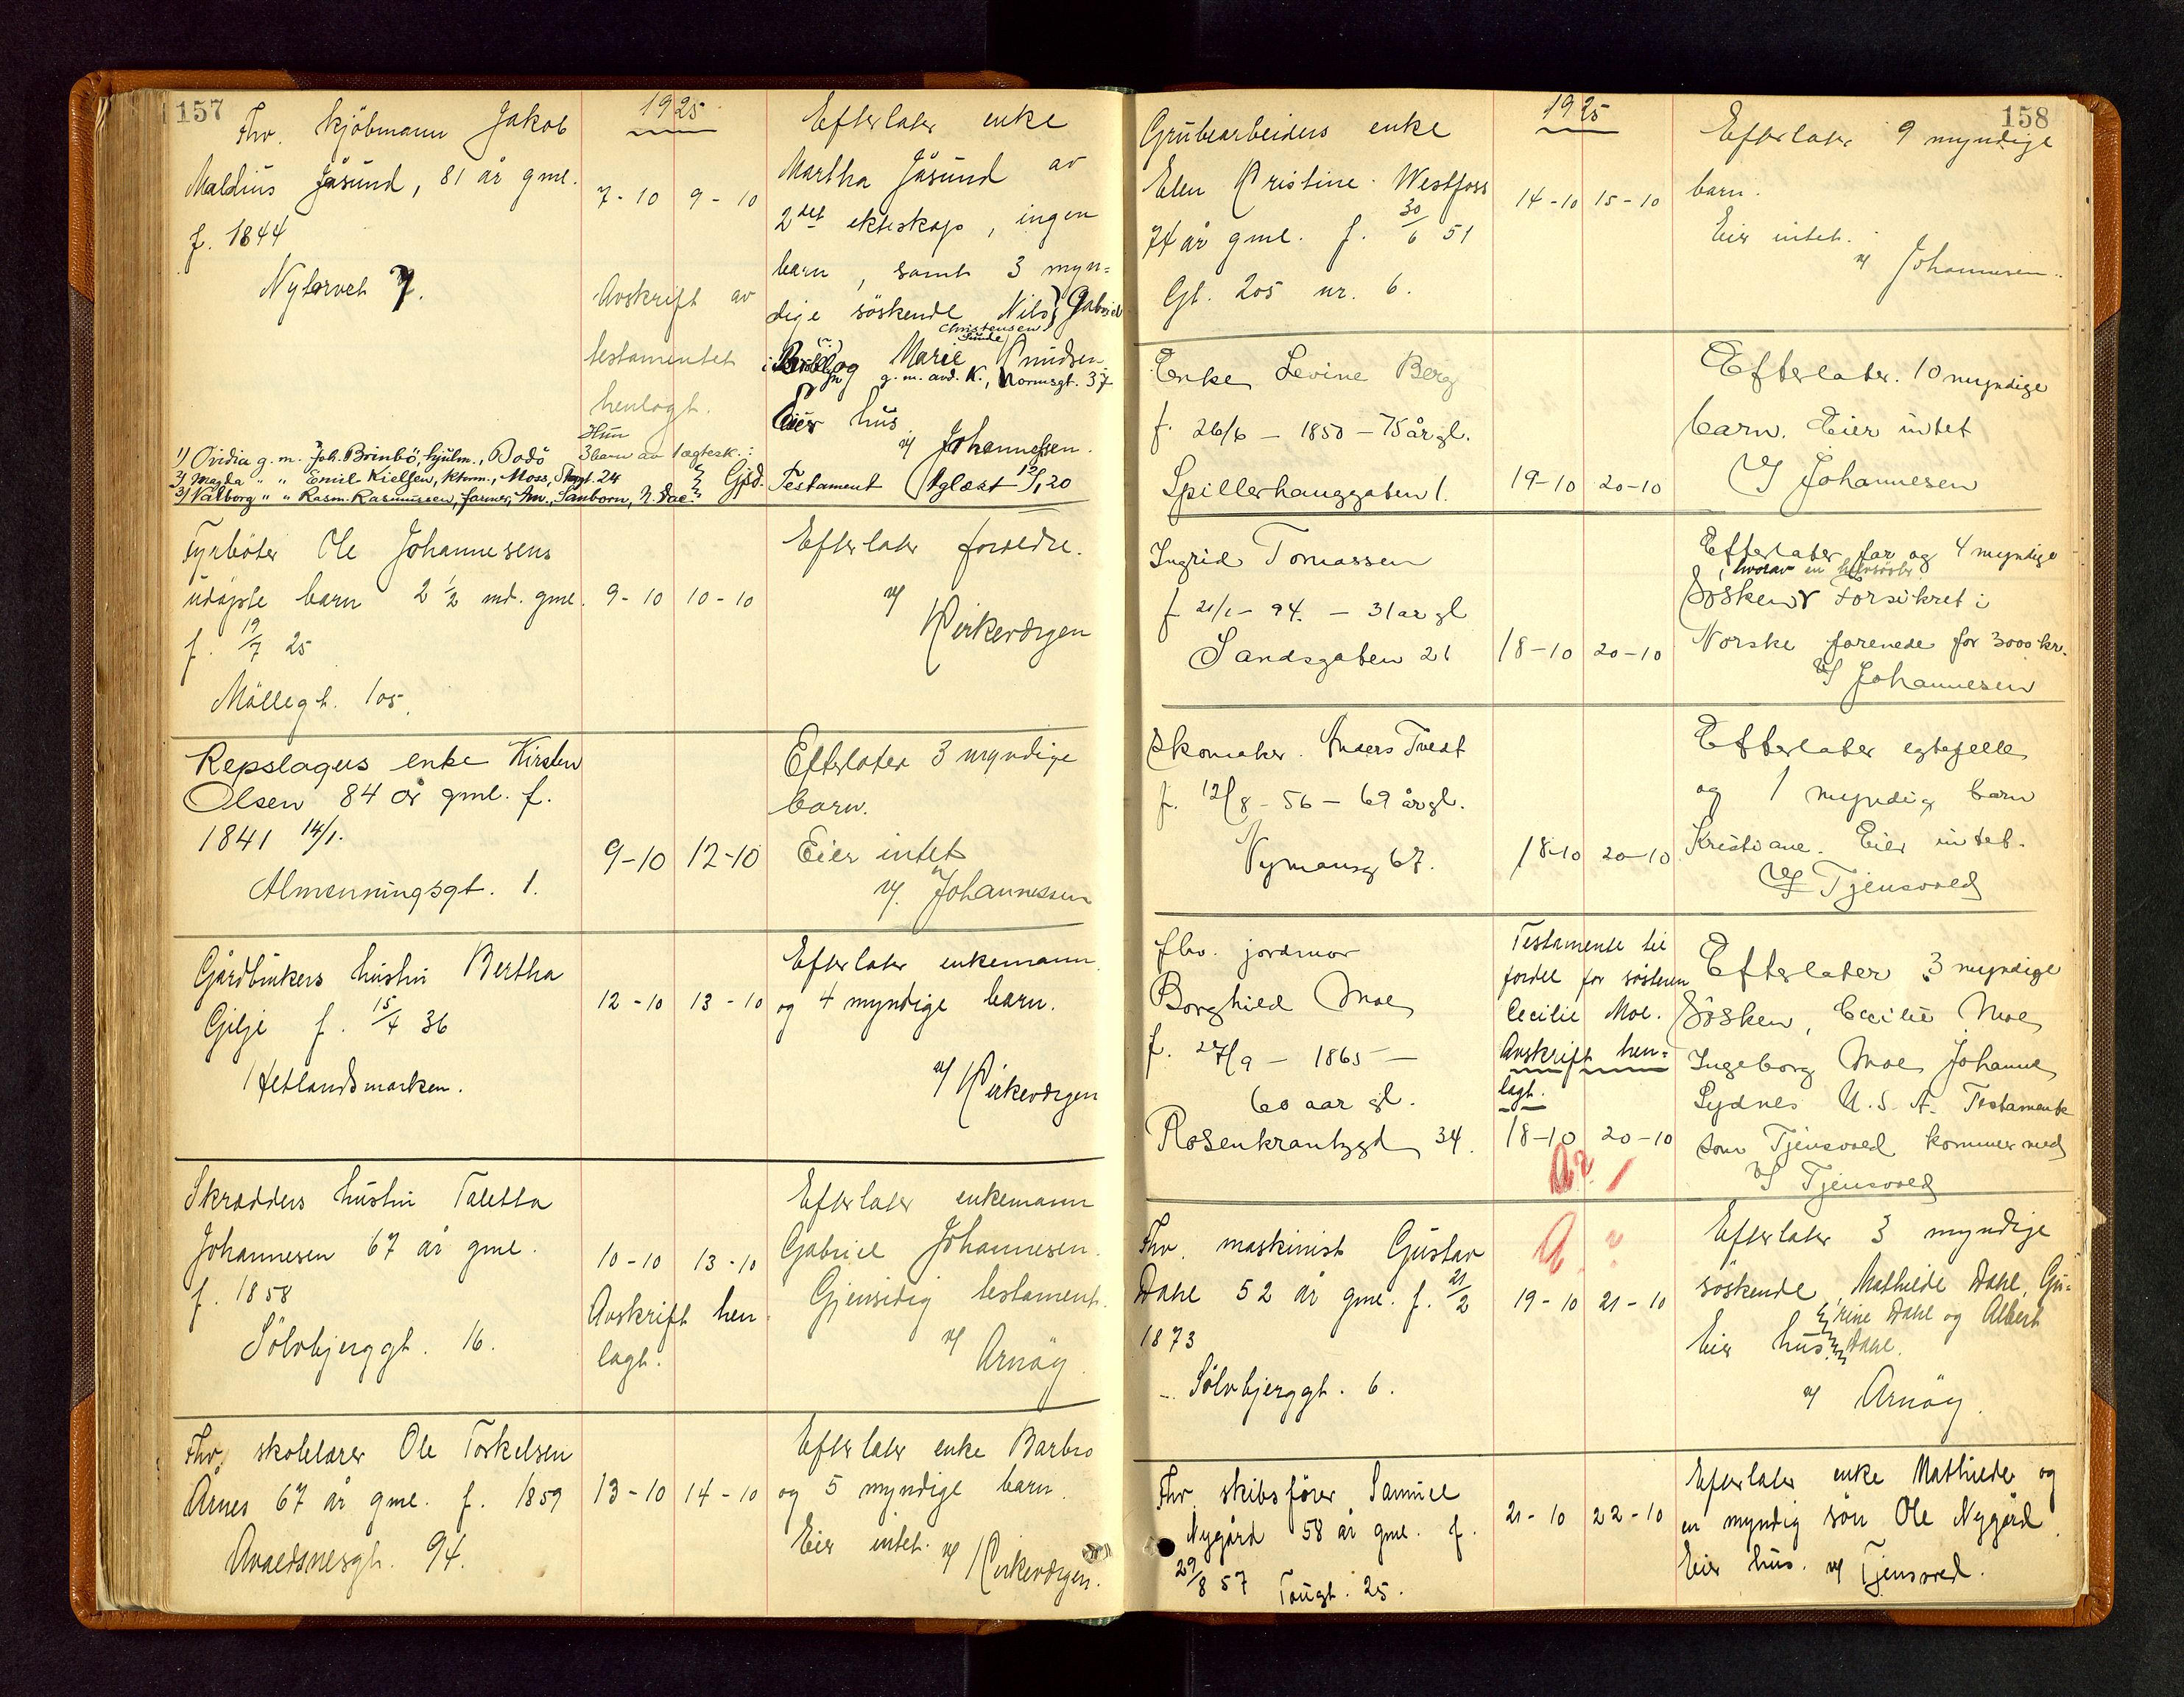 157
1925
Fhv. kjöbmann Jakob
Maldius Jåsund, 81 år gml.
f. 1844
Nytorvet 7.
7-10 9-10
Avskrift av
testamentet
henlagt.
Efterlater enke
Martha Jåsund av
2det ekteskap, ingen
barn, samt 3 myn=
dige söskende Nils, Gabriel
Christensen
Sunde
og Marie Knudsen
g.m. avd. K., Normsgt. 37
Eier hus
v/ Johannessen.
Hun
3 barn av 1 ægtesk.:
1) Ovidia g.m. Joh. Brinbö, hjulm., Bodö
2) Magda " " Emil Kielsen, khvm., Moss, Skogt. 24
3) Valborg " " Rasm. Rasmussen, farmer, Sanborn, N. Dac.
Gjsd.
Testament Oplæst 13/1 20
Fyrböter Ole Johannesens
udöpte barn 2 1/2 md. gml.
f. 19/7 25
Möllegt. 105.
9-10 10-10
Efterlater foreldre.
v/ Kirkevergen
Repslagers enke Kirsten
Olsen 84 år gml. f.
1841 14/1.
Almenningsgt. 1.
9-10 12-10
Efterlater 3 myndige
barn.
Eier intet
v/. Johannessen
Gårdbrukers hustru Bertha
Gilje f. 15/4 36
Hetlandsmarken.
12-10 13-10
Efterlater enkemann
og 4 myndige barn.
v/ Kirkevergen
Skredders hustru Taletta
Johannesen 67 år gml.
f. 1858
Sölvbjerggt. 16.
10-10 13-10
Avskrift hen
lagt.
Efterlater enkemann
Gabriel Johannesen.
Gjensidig testament.
v/ Arnöy.
Fhv. skolelærer Ole Torkelsen
Årnes 67 år gml. f. 1859
Avaldsnesgt. 94.
13-10 14-10
Efterlater enke Barbro
og 5 myndige barn.
Eier intet. v/ Kirkevergen.
158
1925
Grubearbeiders enke
Elen Kristine Westfoss
74 år gml. f. 30/6 51
Gt. 205 nr. 6.
14-10 15-10
Efterlater 9 myndige
barn.
Eier intet.
v/ Johannesen.
Enke Levine Berg
f. 26/6 - 1850 - 75 år gl.
Spillerhauggaten 1.
19-10 20-10
Efterlater. 10 myndige
barn. Eier intet
v/ Johannesen
Ingrid Tomassen
f 21/1 - 94. - 31 aar gl
Sandsgaten 21
18-10 20-10
Efterlater far og 4 myndige
, hvorav en halvsöster
Sösken Forsikret i
Norske forenede for 3000 kr.
v/ Johannesen
Skomaker. Anders Tvedt
f. 12/8 - 56 - 69 år gl.
Nymansg 67.
18-10 20-10
Efterlater egtefelle
og 1 myndig barn
Kristiane. Eier intet.
v/ Tjensvold
fhv. jordmor
Borghild Moe
f. 27/9 - 1865 -
60 aar gl.
Rosenkrantzgt 34.
Testamente til
fordel for sösteren
Cecilie Moe.
Avskrift hen=
lagt.
18-10 20-10
Efterlater 3 myndige
Sösken, Cecilie Moe,
Ingeborg Moe Johanne
Lydnes U.S.A. Testamente
som Tjensvold kommer med
v/ Tjensvold
Fhv. maskinist Gustav
Dahl 52 år gml. f. 21/2
1873
Sölvbjerggt. 6.
19-10 21-10
Efterlater 3 myndige
söskende, Mathilde Dahl, Gu-
rine Dahl og Albert
Eier hus. Dahl.
v/ Arnöy.
Fhv. skibsförer Samuel
Nygård 58 år gml. f.
29/8 57 Tougt. 25.
21-10 22-10
Efterlater enke Mathilde og
en myndig sön Ole Nygård.
Eier hus. v/ Tjensvold.